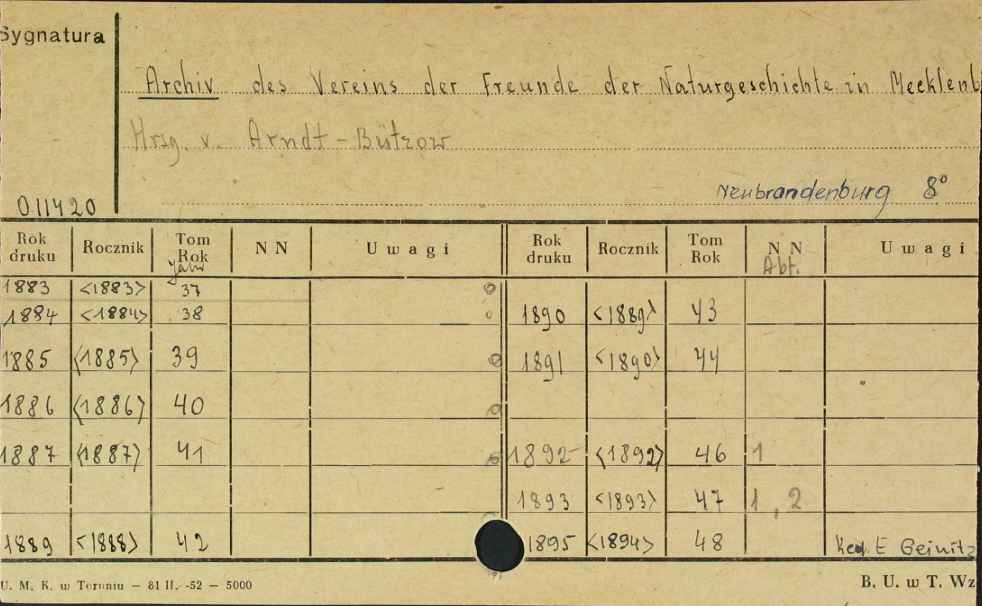 Sygnatura
Archiv des Vereins der Freunde der Naturgeschichte in Mecklenb
Hrsg. v. Arndt-Bützow
Neubrandenburg 8°
011420
Rok druku Rocznik Tom Rok Jahr N N Uwagi Rok druku Rocznik Tom Rok N N Abt. Uwagi
1883 <1883> 37
1884 <1884> 38 1890 <1889> 43
1885 <1885> 39 1891 <1890> 44
1886 <1886> 40
1887 <1887> 41 1892 <1892> 46 1
1893 <1893> 47 1, 2
1889 <1888> 42 1895 <1894> 48 E Geinitz
U. M. K. w Toruniu — 81 II. -52 — 5000 B. U. w T. Wz